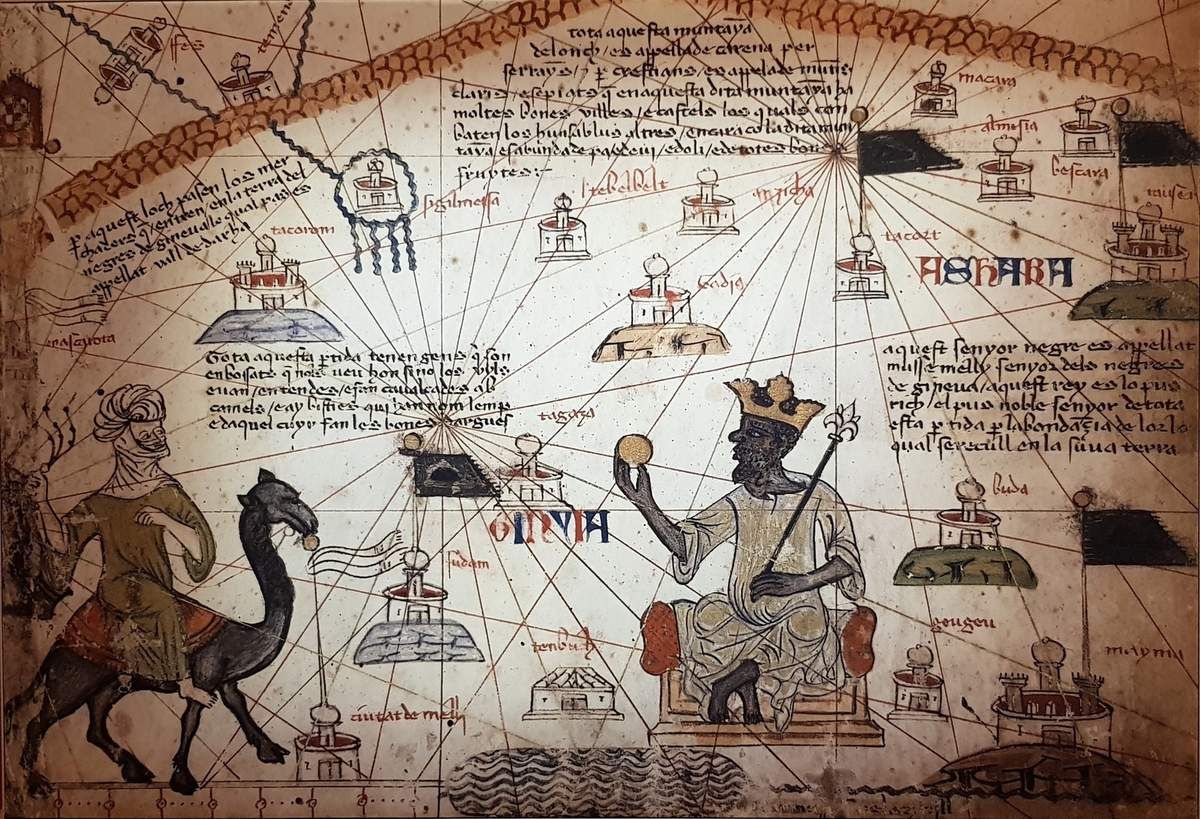 fes
tota aquesta muntaya
de lonch / es appellade carena per
serrayns / e p crestians / es apelade muns
claris / e sepiats q en aquesta dita muntaya ha
moltes bones villes / e castels los quals con
baten los huns ab lus altres / encara co la dita mun
taya es abunda de pa e de vi / e doli / e de totes bones
fruytes:-
macara
almista
bescara
p aquest loch pasen los mer
chaders q entren en la terra del
negres de gineua lo qual pas es
appellat vall de darha
sigilmessa
tacorom
tacort
ASHARA
tagaza
Tota aquesta ptida tenen gens q son
enbosats q nols veu hon sino los uyls
e van en tendes / e fan caualcades ab
camels / e ay bisties qui han nom lemp
e daquel cuyr fan les bones dargues
aquest senyor negre es appellat
musse melly senyor dels negres
de gineua / aquest rey es lo pus
rich / el pus noble senyor de tota
esta ptida p labondancia de lor lo
qual se recull en la suua terra
buda
GINYIA
sudam
tenbuch
geugeu
mayma
ciutat de melli